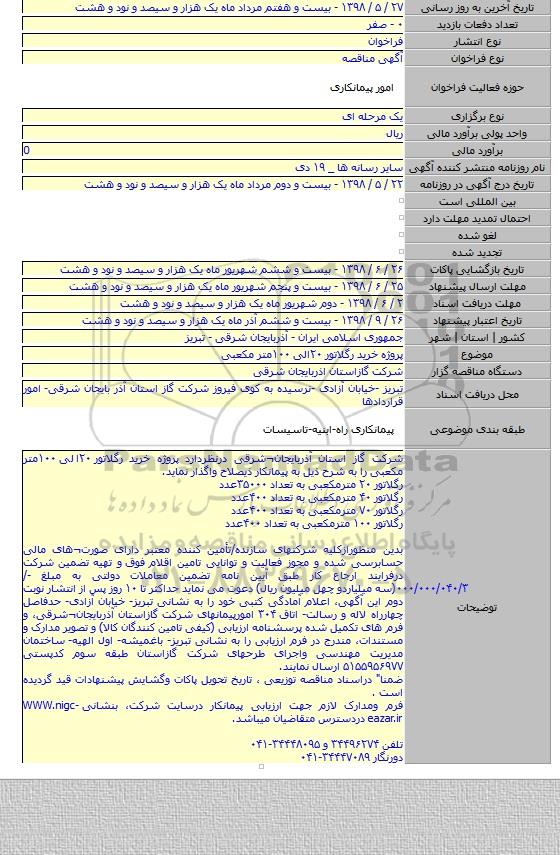 تاریخ آخرین به روز رسانی ۲۷ / ۵ / ۱۳۹۸ - بیست و هفتم مرداد ماه یک هزار و سیصد و نود و هشت
تعداد دفعات بازدید ۰ - صفر
نوع انتشار فراخوان
نوع فراخوان آگهی مناقصه
حوزه فعالیت فراخوان امور پیمانکاری
نوع برگزاری یک مرحله ای
واحد پولی برآورد مالی ریال
برآورد مالی 0
نام روزنامه منتشر کننده آگهی سایر رسانه ها _ ۱۹ دی
تاریخ درج آگهی در روزنامه ۲۲ / ۵ / ۱۳۹۸ - بیست و دوم مرداد ماه یک هزار و سیصد و نود و هشت
بین المللی است
احتمال تمدید مهلت دارد
لغو شده
تجدید شده
تاریخ بازگشایی پاکات ۲۶ / ۶ / ۱۳۹۸ - بیست و ششم شهریور ماه یک هزار و سیصد و نود و هشت
مهلت ارسال پیشنهاد ۲۵ / ۶ / ۱۳۹۸ - بیست و پنجم شهریور ماه یک هزار و سیصد و نود و هشت
مهلت دریافت اسناد ۲ / ۶ / ۱۳۹۸ - دوم شهریور ماه یک هزار و سیصد و نود و هشت
تاریخ اعتبار پیشنهاد ۲۶ / ۹ / ۱۳۹۸ - بیست و ششم آذر ماه یک هزار و سیصد و نود و هشت
کشور | استان | شهر جمهوری اسلامی ایران - آذربایجان شرقی - تبریز
موضوع پروژه خرید رگلاتور ۲۰الی ۱۰۰متر مکعبی
دستگاه مناقصه گزار شرکت گازاستان اذربایجان شرقی
محل دریافت اسناد تبریز -خیابان آزادی -نرسیده به کوی فیروز شرکت گاز استان آذر بایجان شرقی- امور
قراردادها
طبقه بندی موضوعی پیمانکاری راه-ابنیه-تاسیسات
توضیحات
شرکت گاز استان آذربایجان¬شرقی درنظردارد پروژه خرید رگلاتور ۲۰ا لی ۱۰۰متر
مکعبی را به شرح ذیل به پیمانکار ذیصلاح واگذار نماید.
رگلاتور ۲۰ مترمکعبی به تعداد ۳۵۰۰۰عدد
رگلاتور ۴۰ مترمکعبی به تعداد ۴۰۰عدد
رگلاتور ۷۰ مترمکعبی به تعداد ۴۰۰عدد
رگلاتور ۱۰۰ مترمکعبی به تعداد ۴۰۰عدد
بدین منظورازکلیه شرکتهای سازنده/تأمین کننده معتبر دارای صورت¬های مالی
حسابرسی شده و مجوز فعالیت و توانایی تامین اقلام فوق و تهیه تضمین شرکت
درفرایند ارجاع کار طبق آیین نامه تضمین معاملات دولتی به مبلغ /-
۳/۰۴۰/۰۰۰/۰۰۰(سه میلیاردو چهل میلیون ریال) دعوت می نماید حداکثر تا ۱۰ روز پس از انتشار نوبت
دوم این آگهی، اعلام آمادگی کتبی خود را به نشانی تبریز- خیابان آزادی- حدفاصل
چهارراه لاله و رسالت- اتاق ۳۰۴ امورپیمانهای شرکت گازاستان آذربایجان¬شرقی، و
فرم های تکمیل شده پرسشنامه ارزیابی (کیفی تامین کنندگان کالا) و تصویر مدارک و
مستندات، مندرج در فرم ارزیابی را به نشانی تبریز- باغمیشه- اول الهیه- ساختمان
مدیریت مهندسی واجرای طرحهای شرکت گازاستان طبقه سوم کدپستی
۵۱۵۵۹۵۶۹۷۷ ارسال نمایند.
ضمنا" دراسناد مناقصه توزیعی ، تاریخ تحویل پاکات وگشایش پیشنهادات قید گردیده
است .
فرم ومدارک لازم جهت ارزیابی پیمانکار درسایت شرکت، بنشانی WWW.nigc-
eazar.ir دردسترس متقاضیان میباشد.
تلفن ۳۴۴۹۶۲۷۴ و ۳۴۴۴۸۰۹۵-۰۴۱
دورنگار ۳۴۴۴۷۰۸۹-۰۴۱
ParsNamadData
پایگاه اطلاع رسانی مناقصه و مزایده